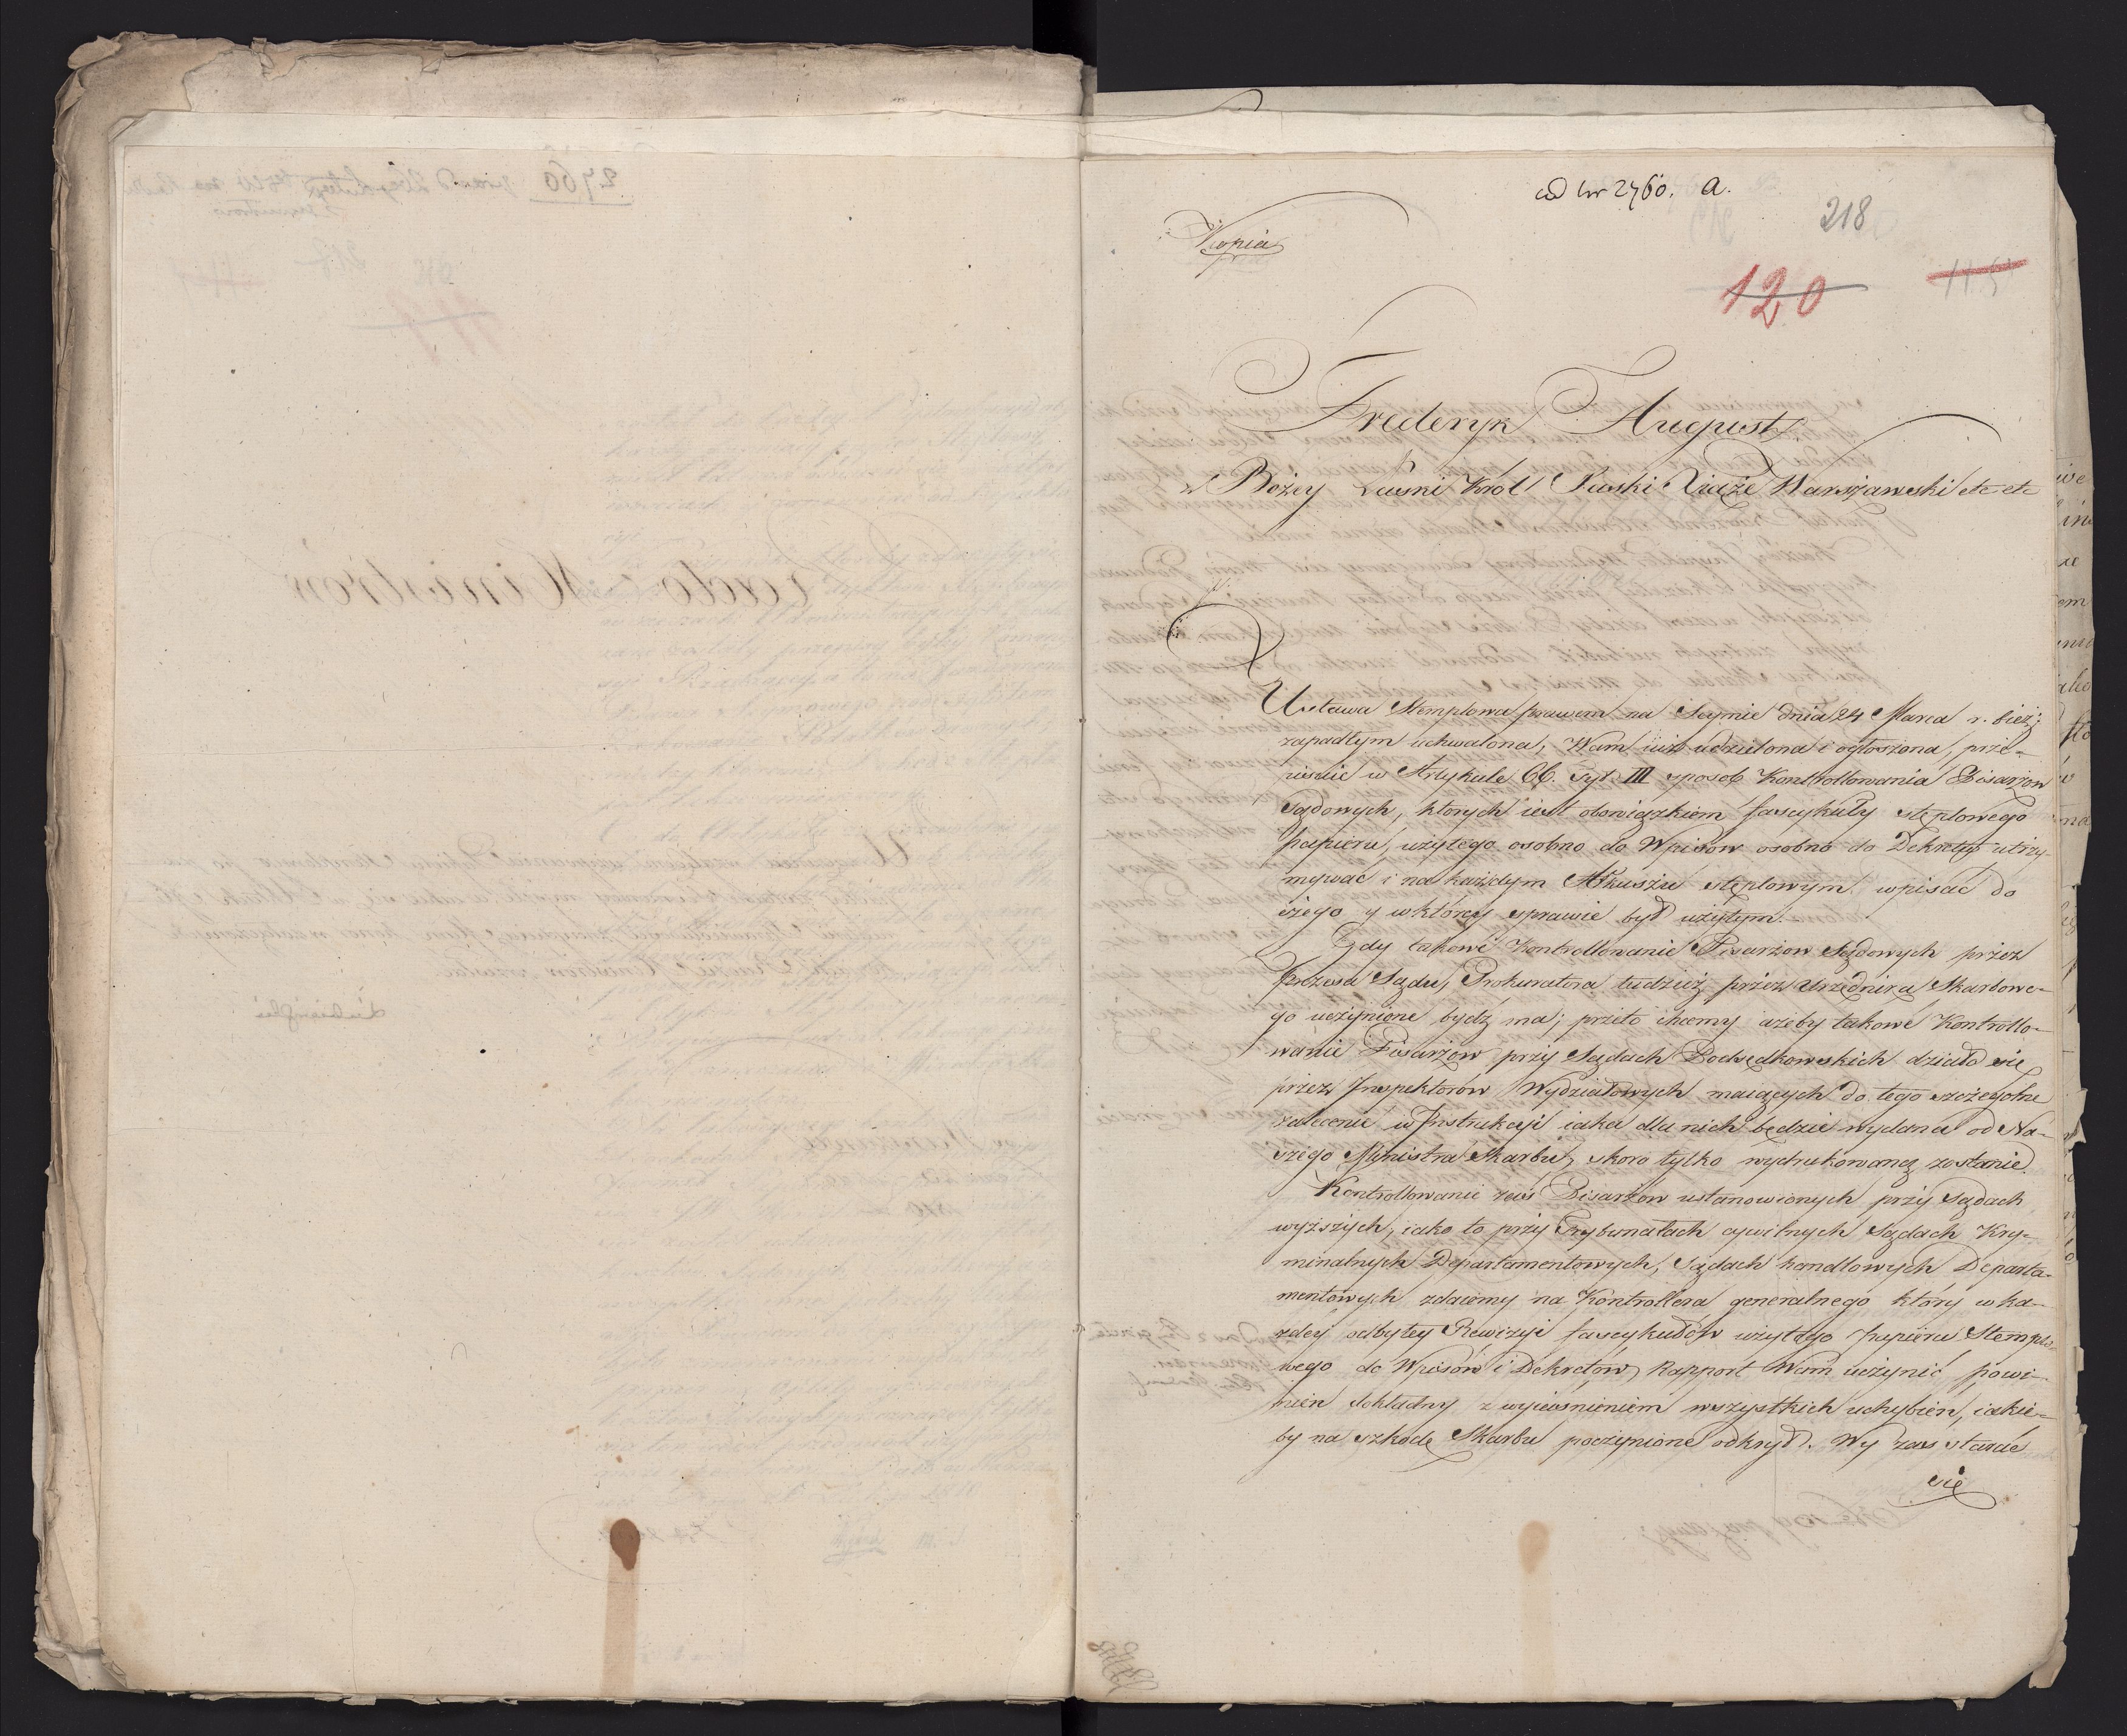 ad Nr 2760. a.
218
Kopia
120
Fryderyk August
z Bożey Łaski Krol Saski Xiąże Warszawski etc etc
Ustawa Stemplowa prawem na Seymie dnia 24 Marca r. bież:
zapadłym uchwalona, Wam iuż udzielona i ogłoszona, prze-
niesie w Artykule 66. Tyt. III sposob Kontrollowania Pisarzow
Sądowych, ktorych iest obowiązkiem fascykuły steplowego
papieru, użytego osobno do Wpisow osobno do Dekretow utrzy-
mywać i na każdym Arkuszu steplowym wpisać do
czego y w ktorey sprawie był użytym.
Gdy takowe Kontrollowanie Pisarzow Sądowych przez
Prezesa Sądu, Prokuratora tudzież przez Urzędnika Skarbowe-
go uczynione bydź ma; przeto chcemy ażeby takowe Kontrollo-
wanie Pisarzow przy Sądach Podsędkowskich działo się
przez Inspektorow Wydziałowych maiących do tego szczegolne
zalecenie w Instrukcyi iaka dla nich będzie wydana od Na-
szego Ministra Skarbu, skoro tylko wydrukowaną zostanie.
Kontrollowanie zaś Pisarzow ustanowionych przy Sądach
wyższych, iako to przy Trybunałach cywilnych Sądach Kry-
minalnych Departamentowych, Sądach handlowych Departa-
mentowych zdaiemy na Kontrollera generalnego ktory w ka-
zdey odbytey Rewizyi fascykułow użytego Papieru Stemplo-
wego do Wpisow i Dekretow, Rapport Wam uczynić powi-
nien dokładny z wyiaśnieniem wszystkich uchybień, iakie-
by na szkodę Skarbu poczynione odkrył. Wy zaś starać
się